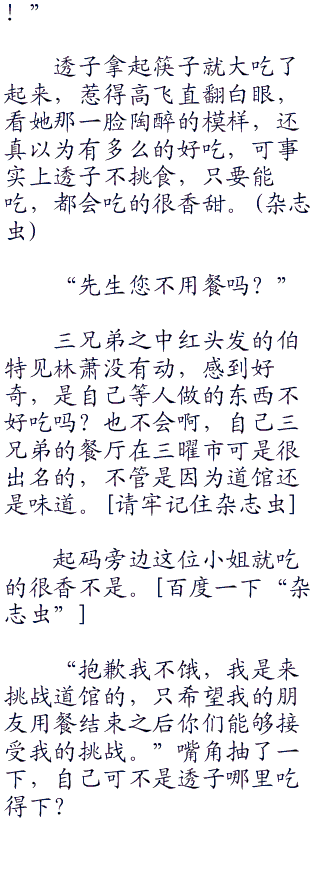 ！”
透子拿起筷子就大吃了
起来，惹得高飞直翻白眼，
看她那一脸陶醉的模样，还
真以为有多么的好吃，可事
实上透子不挑食，只要能
吃，都会吃的很香甜。(杂志
虫)
“先生您不用餐吗？”
三兄弟之中红头发的伯
特见林萧没有动，感到好
奇，是自己等人做的东西不
好吃吗？也不会啊，自己三
兄弟的餐厅在三曜市可是很
出名的，不管是因为道馆还
是味道。[请牢记住杂志虫]
起码旁边这位小姐就吃
的很香不是。[百度一下“杂
志虫”]
“抱歉我不饿，我是来
挑战道馆的，只希望我的朋
友用餐结束之后你们能够接
受我的挑战。”嘴角抽了一
下，自己可不是透子哪里吃
得下？